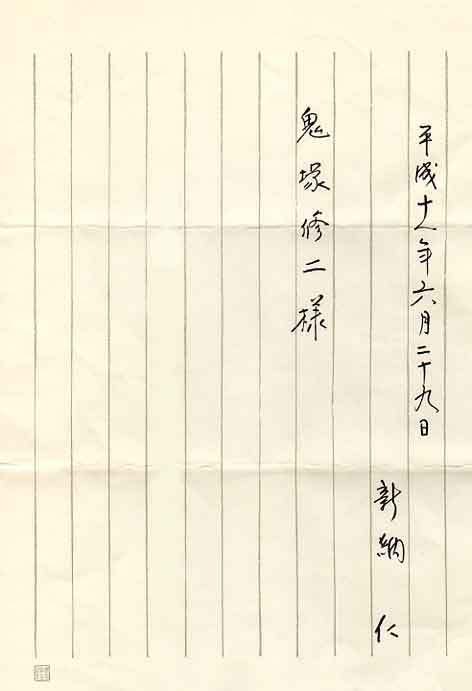 平成十八年六月二十九日
新納 仁
鬼塚修二様